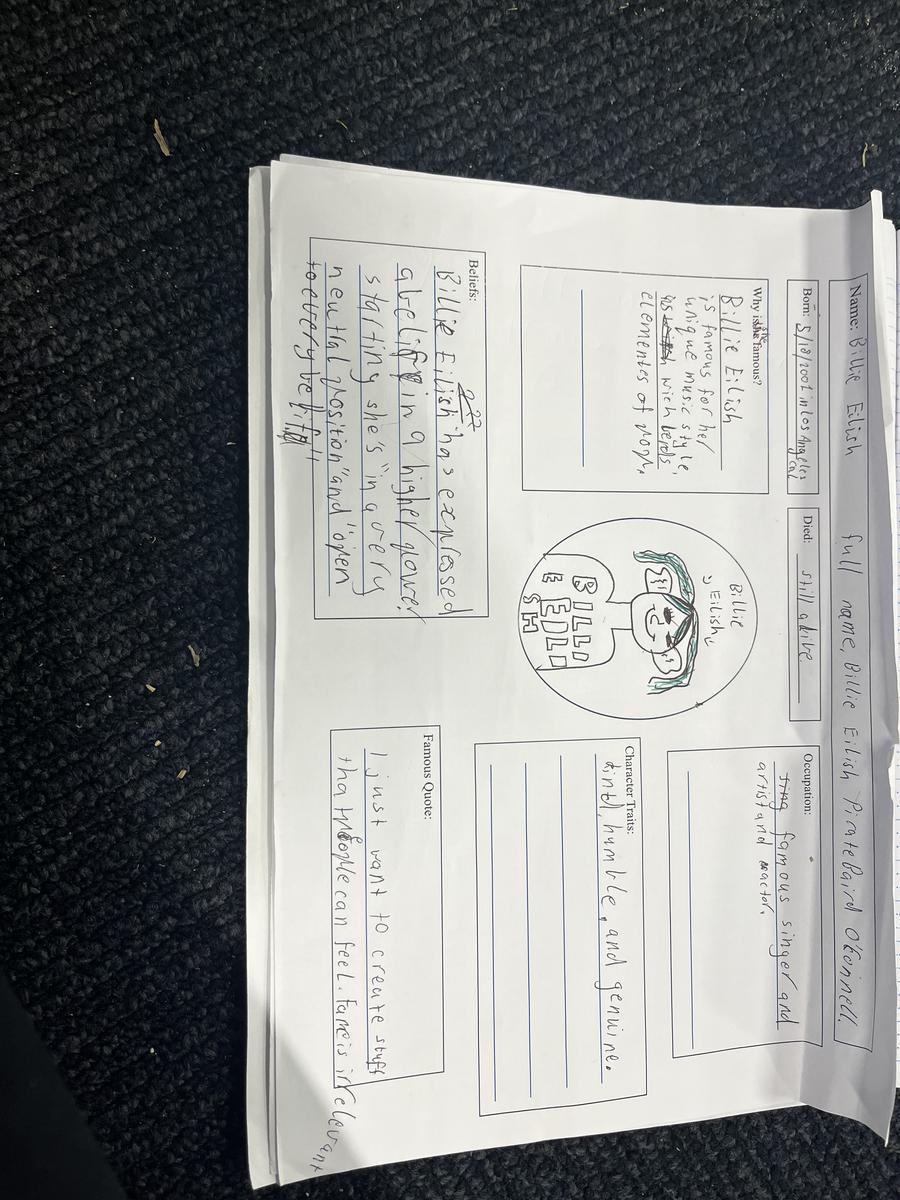 Name: Billie Eilish full name, Billie Eilish Pirate Baird O'Connell.
Born: in Los Angeles
cal
Died: still alive
Occupation:
famous singer and
artist and actor.
Why is she famous?
Billie Eilish
is famous for her
unique music style,
wich
elementes of pop,
Billie
Eilish
BILLI
E EILI
SH
Character Traits:
humble, and genuine.
Beliefs:
Billie Eilish has expressed
in a higher power
starting she's "in a very
neutral position" and "open
to every
Famous Quote:
I just want to create stuff
that people can feel. Fame is irrelevant